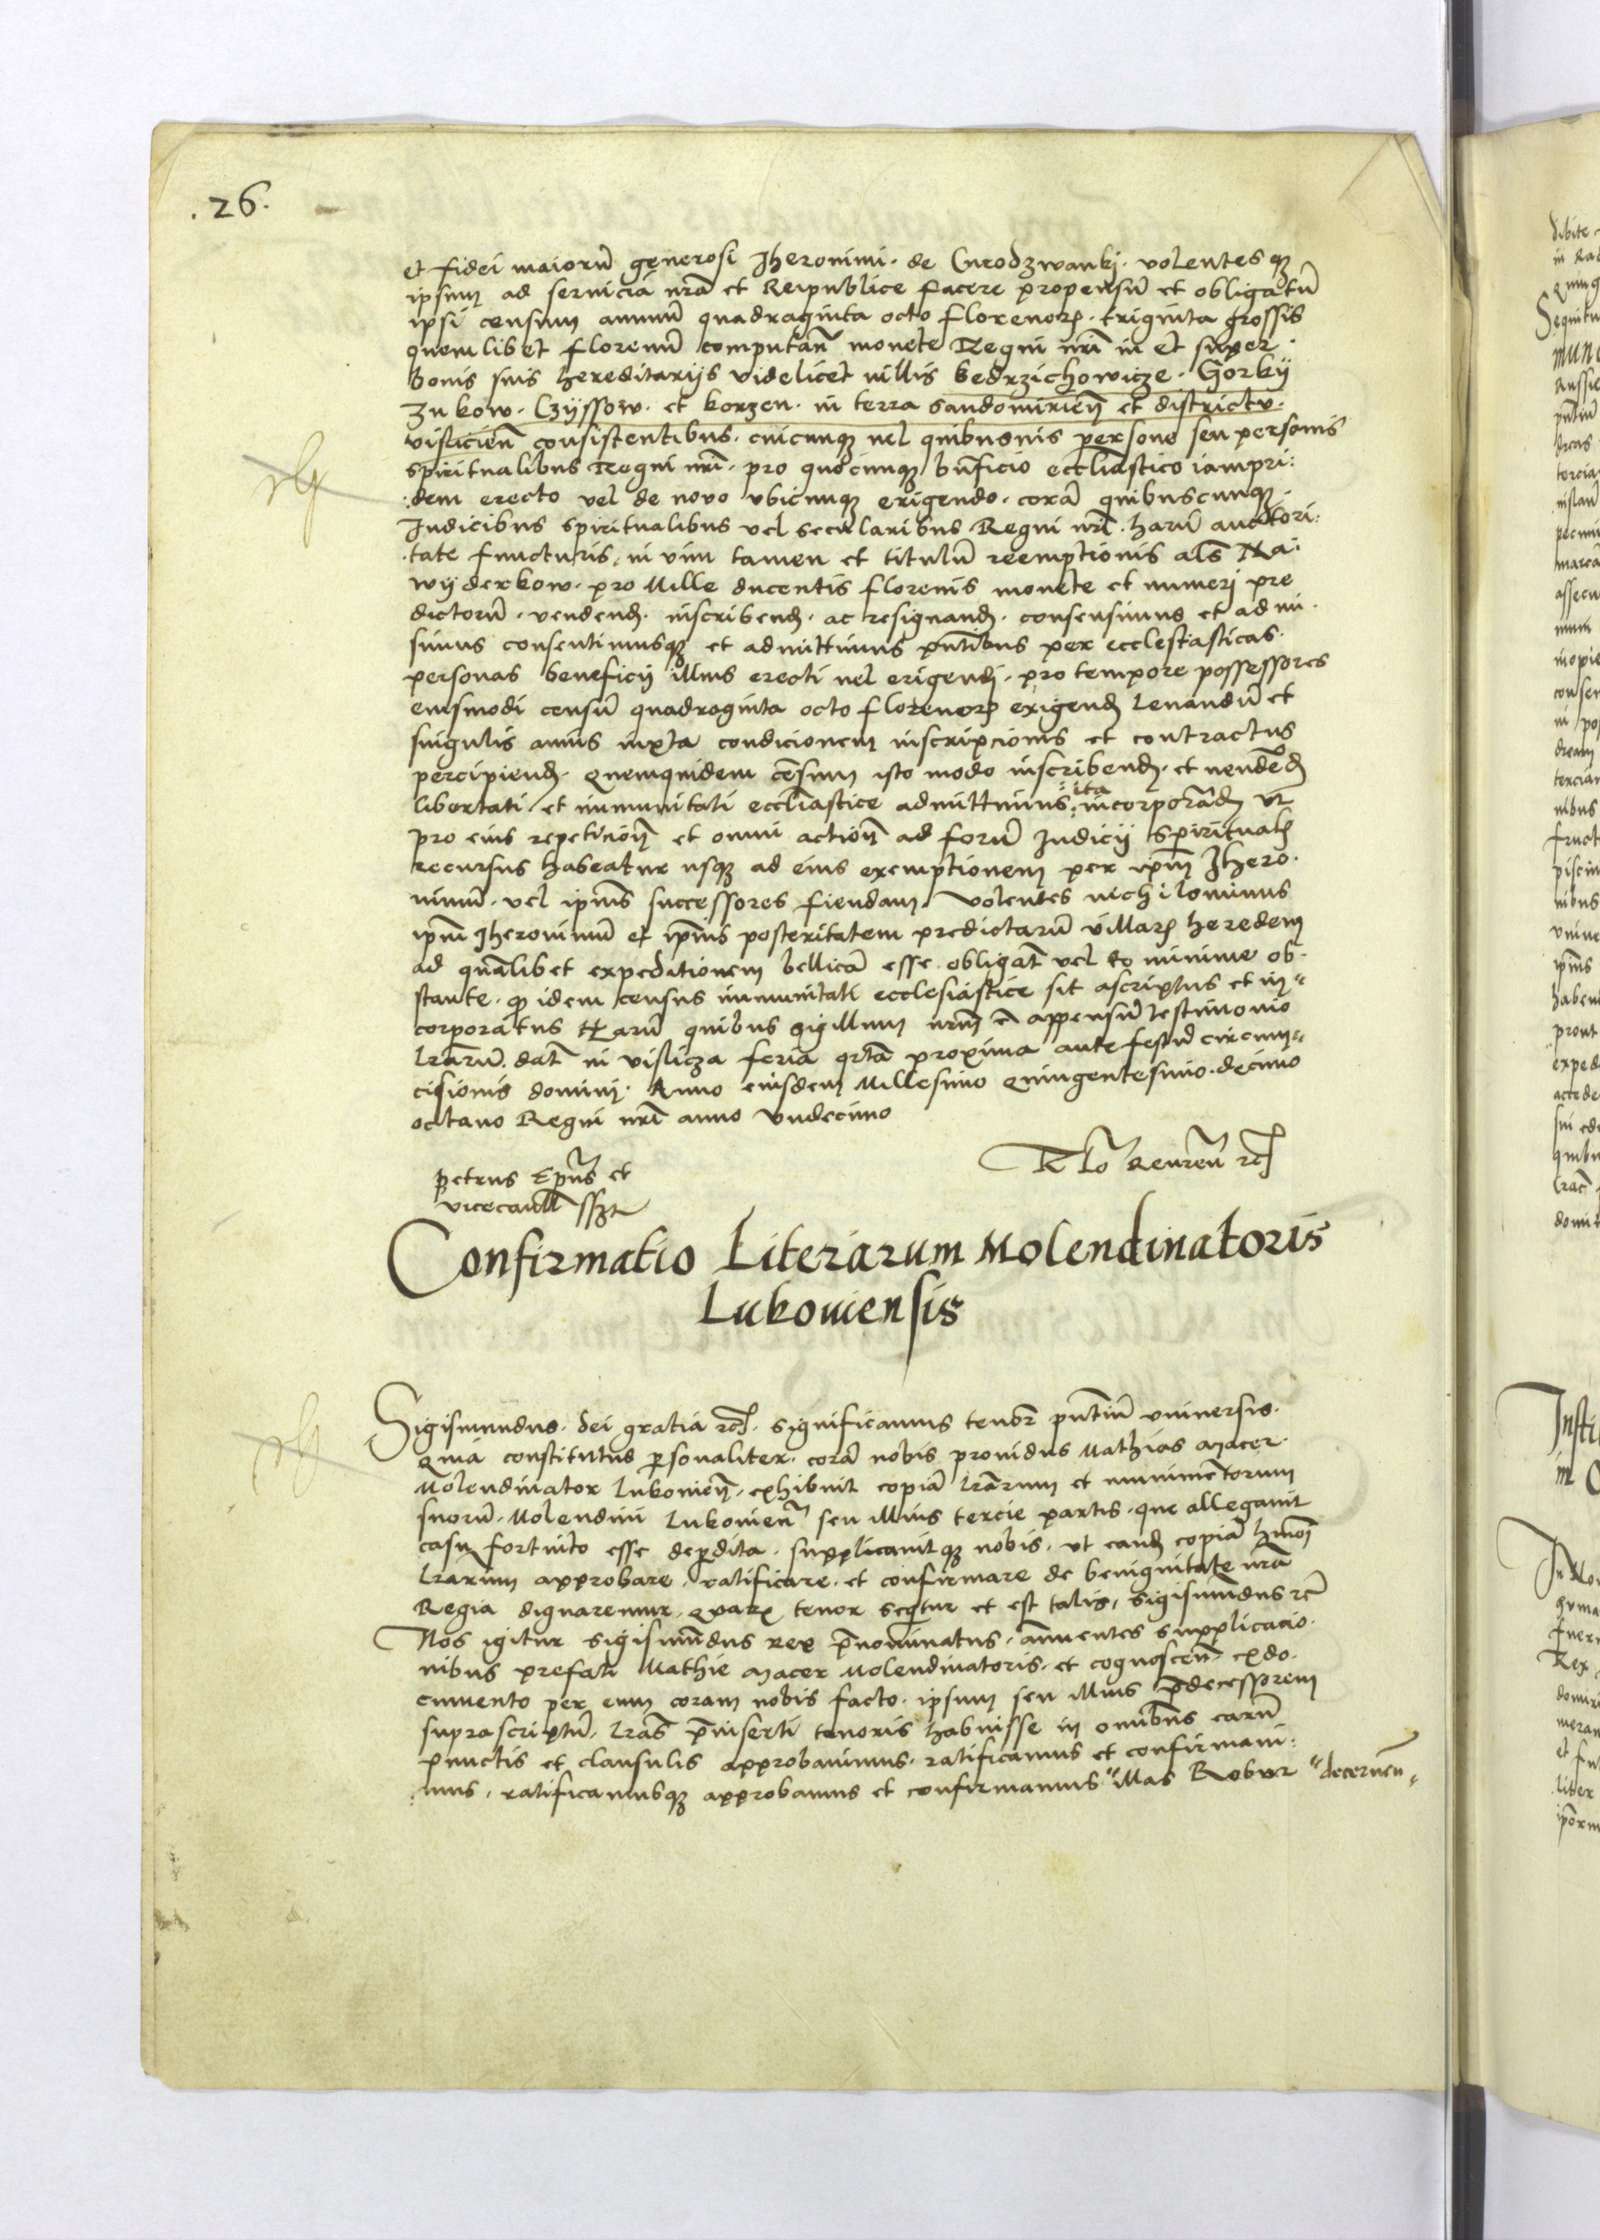 .26.
et fidei maiorū generosi Jheronimi · de Gnrodzwankj · volentesqꝫ
ipsum ad servicia nr̄a et Reipublice facere propensū et obligatū
ipsi censum annuū quadraginta octo florenorꝫ · triginta grossis
quemlibet florenū computan̄ monete Regni nr̄i in et super ·
bonis suis hereditarijs videlicet villis bedrzichowicze · Gorkij
Zukow · Czijssow · et korzen · in terra sandomirien̄ et districtu ·
vislicien̄ consistentibus · cuicunqꝫ vel quibusvis persone seu personis
spiritualibus Regni nr̄i · pro quocunqꝫ bn̄ficio eccl̄iastico iampri:
·dem erecto vel de novo ubicunqꝫ erigendo · corā quibuscunqꝫ ·
Judicibus spiritualibus vel secularibus Regni nr̄i · harū auctori:
·tate functuris, in vim tamen et titulū reemptionis al̄s Na:
wijderkow · pro Mille ducentis florenis monete et numerj pre
dictorū · vendend̄ · inscribend̄ · ac resignand̄ · consensimus et admi ·
simus consentimusqꝫ et admittimus pn̄tibus per ecclesiasticas ·
personas beneficij illius erecti vel erigendj · pro tempore possessores
eiusmodi censū quadraginta octo florenorꝫ exigend̄ levandū et
singulis annis iuxta condicionem inscripcionis et contractus
percipiend̄ · Quemquidem cēsum isto modo inscribend̄ · et vendēd̄
libertati · et immunitati eccl̄iastice admittimus · ita incorporād̄ ut
pro eius repeticion̄ et omni action̄ ad forū Judicij spiritual̄
recursus habeatur usqꝫ ad eius exemptionem per ip̄m Jhero ·
nimū · vel ipīus successores fiendam Volentes nichilominus
ip̄m Jheronimū et ip̄ius posteritatem predictarū villarꝫ heredem
ad quālibet expeditionem bellicā esse obligat̄ vel eo minime ob ·
stante · qꝫ idem census immunitati ecclesiastice sit ascriptus et in"
corporatus Harū quibus sigillum nr̄m ē appensū testimonio
lr̄arum · dat̄ in visliçza feria qr̄ta proxima ante festū circum"
cisionis dominj · Anno eiusdem Millesimo Quingentesimo · decimo
octavo Regni nr̄i anno Undecimo
petrus Ep̄us et
vicecancell̄ sszt
R̄lo Reveren̄ rc̄
Confirmatio Literarum Molendinatoris
Lukoviensis
Sigismundus · dei gratia rc̄ · significamus tenor̄ pn̄tium universis ·
Quia constitutus personaliter · corā nobis providus Mathias Macer ·
Molendinator lukovien̄ · exhibuit copiā lr̄arum et munimentorum
suorū · Molendini lukovien̄ seu illius tercie partis · que allegavit
casu fortuito esse deperdita · supplicavitqꝫ nobis · ut eand̄ copiā hm̄oi
lr̄arum approbare · ratificare · et confirmare de benignitate nr̄a
Regia dignaremur · Quarꝫ tenor seqtur et est talis, sigismundus rc̄
Nos igitur sigismūdus rex p̄nominatus · annuentes supplicacio ·
nibus prefati Mathie Macer Molendinatoris · et cognoscen̄ ex do ·
cumento per eum coram nobis facto · ipsum seu illius p̄decessorem
suprascriptū · lr̄as p̄inserti tenoris habuisse in omībus earū
punctis et clausulis approbavimus · ratificamus et confirmavi:
:mus · ratificamusqꝫ approbamus et confirmamus " illas Robur "decernen̄"